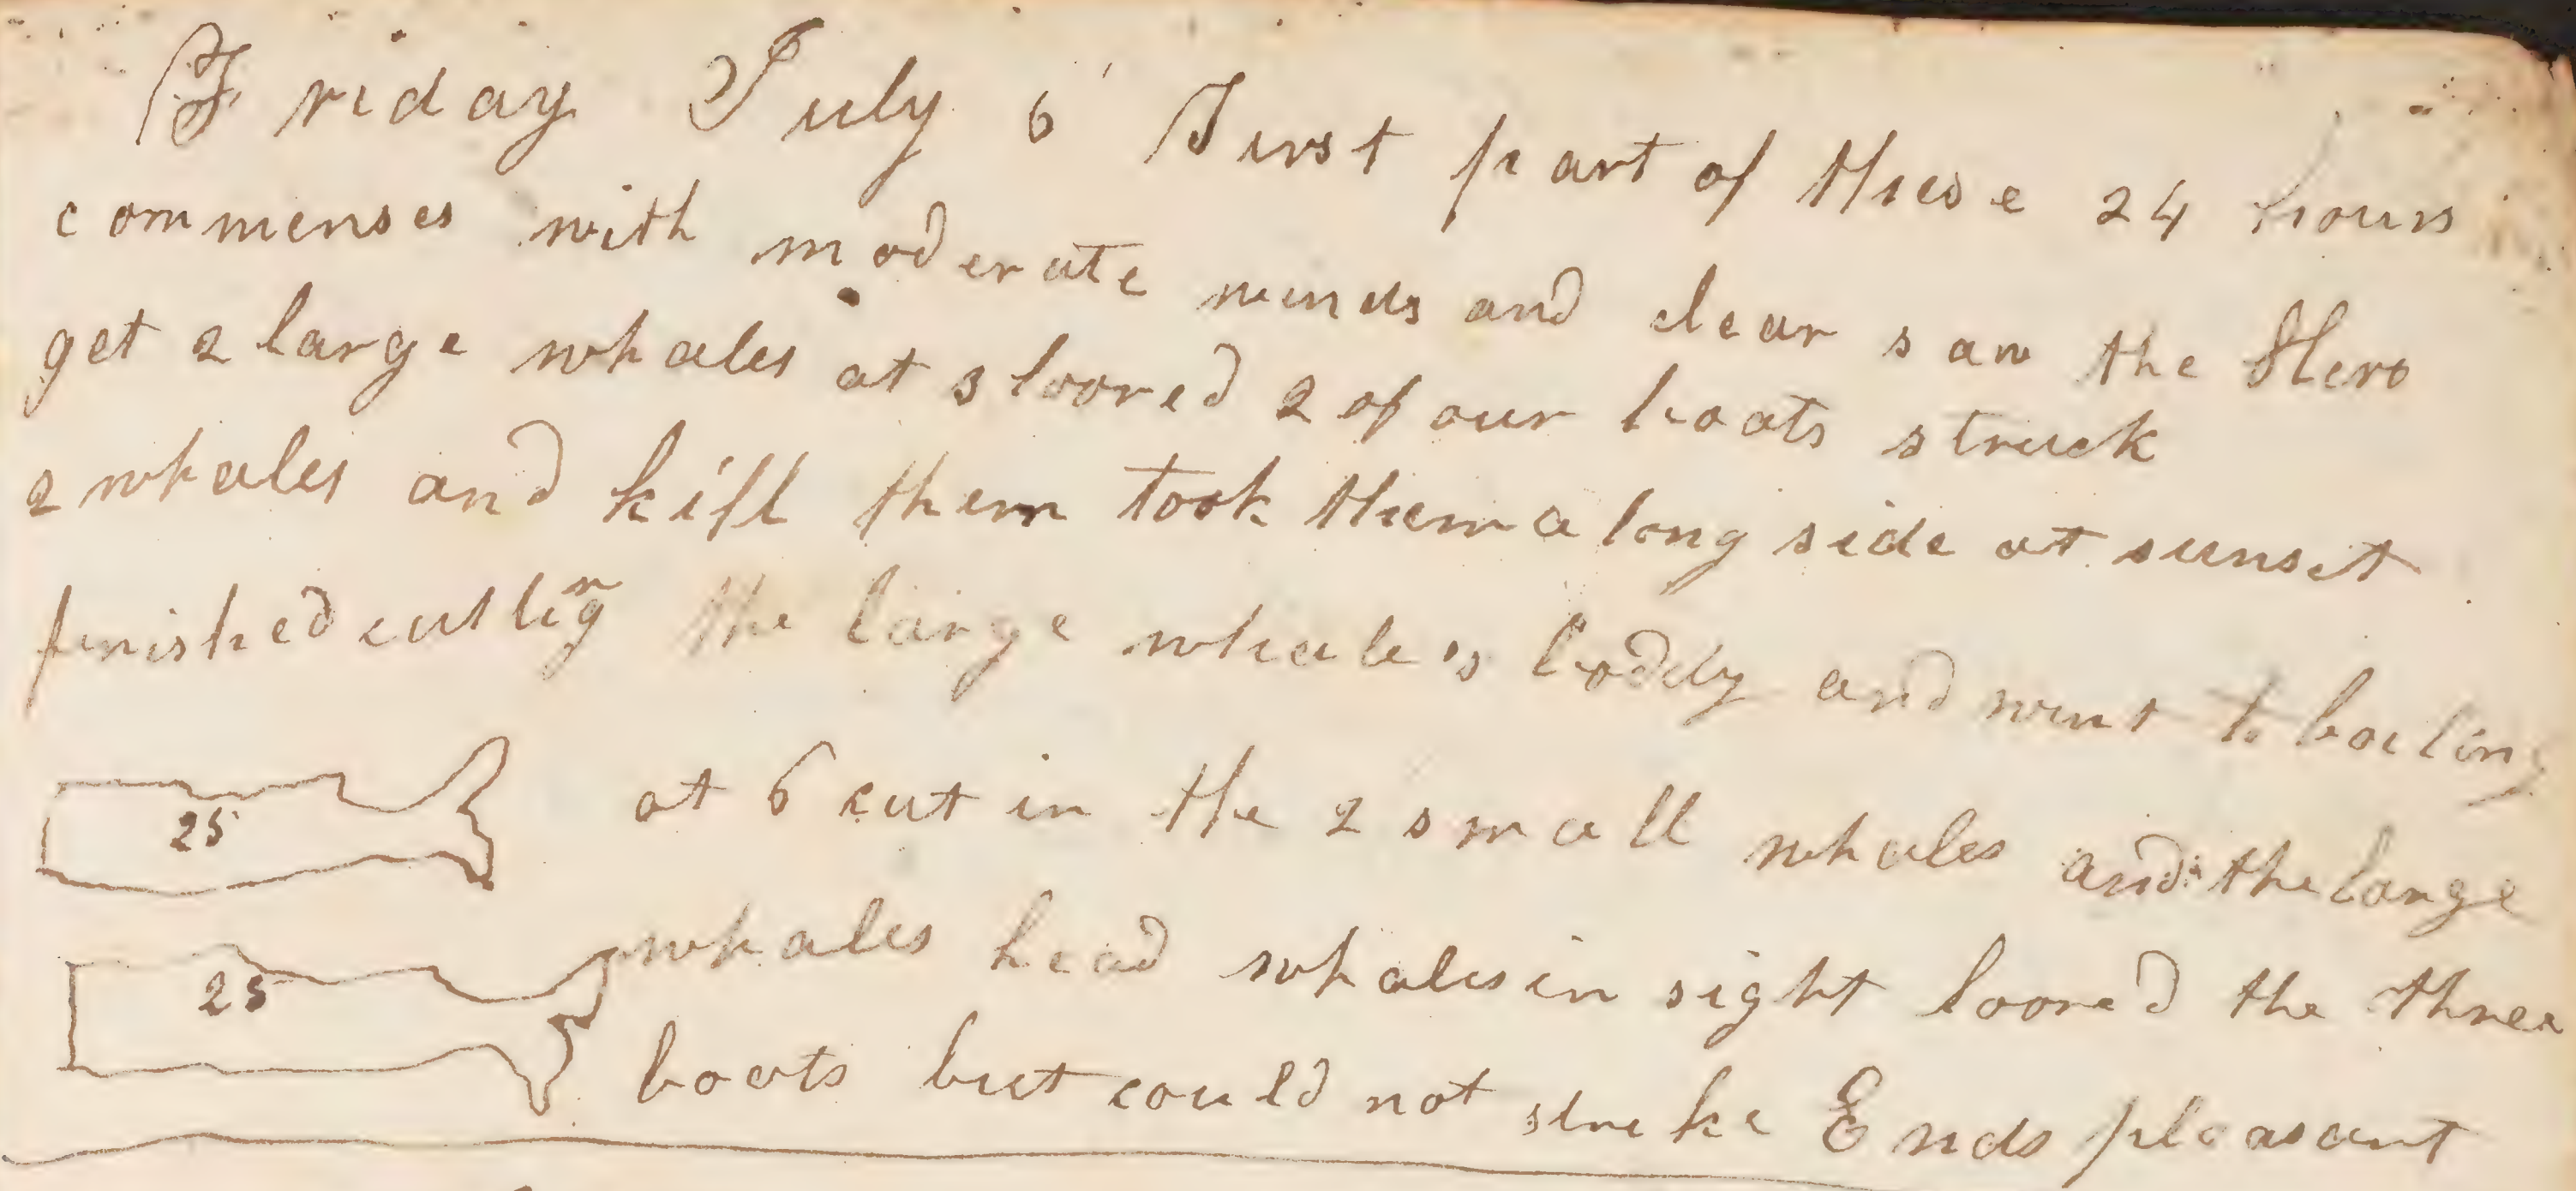 Friday July 6 First part of these 24 hours
commenses with moderate winds and clear saw the Hero
get 2 large whales at 3 loored 2 of our boats struck
2 whales and kill them took them a long side at sunset
finished cutting the large whale's boddy and went to boiling
at 6 cut in the 2 small whales and the large
25
whales head whales in sight loored the three
25
boats but could not strike Ends pleasant